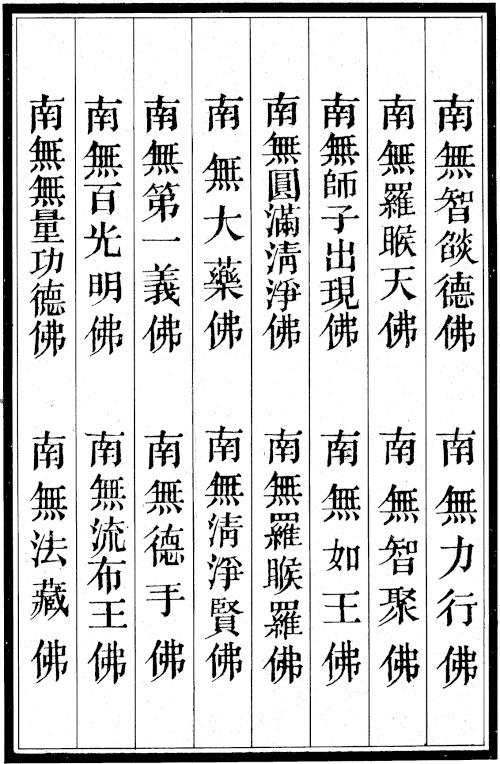 南無智燄德佛　南無力行佛
南無羅睺天佛　南無智聚佛
南無師子出現佛　南無如王佛
南無圓滿淸淨佛　南無羅睺羅佛
南無大藥佛　南無淸淨賢佛
南無第一義佛　南無德手佛
南無百光明佛　南無流布王佛
南無無量功德佛　南無法藏佛